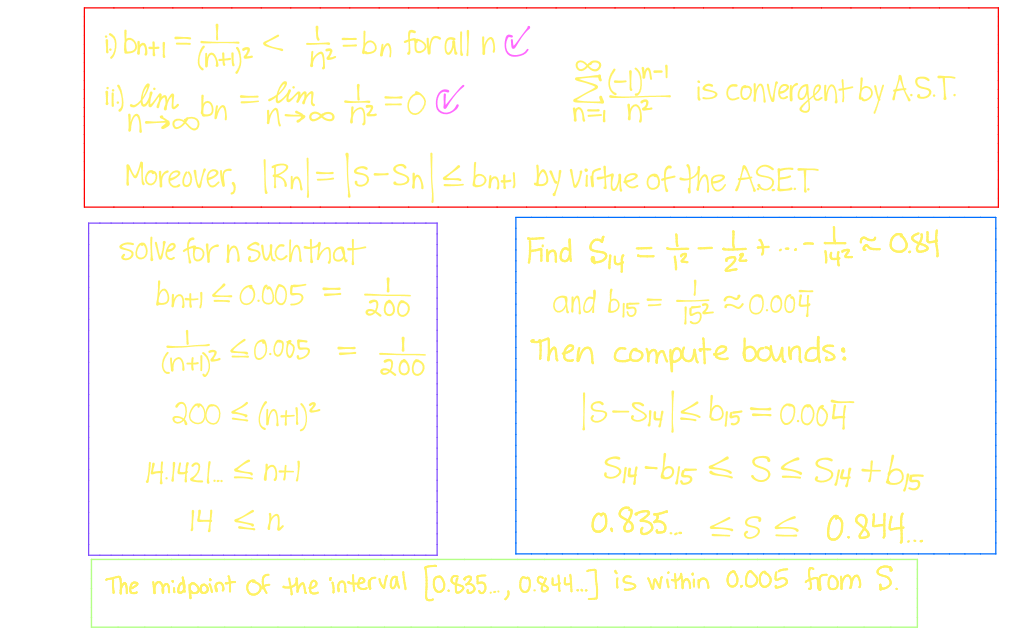 i.) bn+1 = 1/(n+1)² < 1/n² = bn for all n ✓
ii.) lim n→∞ bn = lim n→∞ 1/n² = 0 ✓
∞ Σ n=1 (-1)ⁿ⁻¹/n² is convergent by A.S.T.
Moreover, |Rn| = |S-Sn| ≤ bn+1 by virtue of the A.S.E.T
solve for n such that
bn+1 ≤ 0.005 = 1/200
1/(n+1)² ≤ 0.005 = 1/200
200 ≤ (n+1)²
14.1421... ≤ n+1
14 ≤ n
Find S₁₄ = 1/1² - 1/2² + ... - 1/14² ≈ 0.84
and b₁₅ = 1/15² ≈ 0.004̅
Then compute bounds:
|S-S₁₄| ≤ b₁₅ = 0.004̅
S₁₄-b₁₅ ≤ S ≤ S₁₄+b₁₅
0.835... ≤ S ≤ 0.844...
The midpoint of the interval [0.835..., 0.844...] is within 0.005 from S.